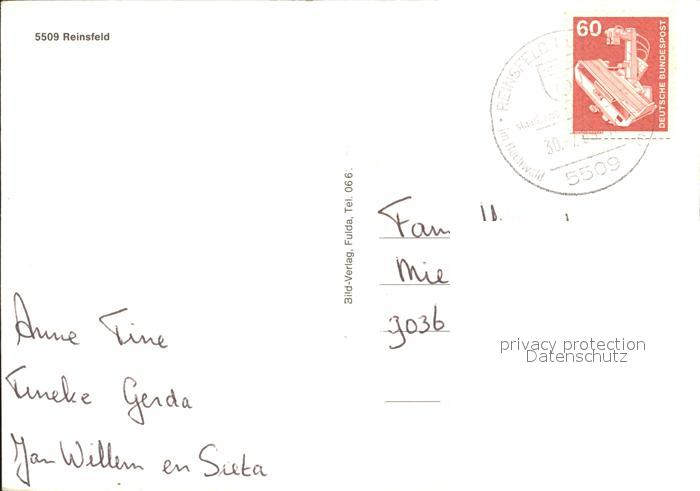 5509 Reinsfeld
60
DEUTSCHE BUNDESPOST
REINSFELD
im Hochwald
30.
5509
Bild-Verlag, Fulda, Tel. 066
Fam
Mie
3036
privacy protection
Datenschutz
Anne Tine
Tineke Gerda
Jan Willem en Sieta